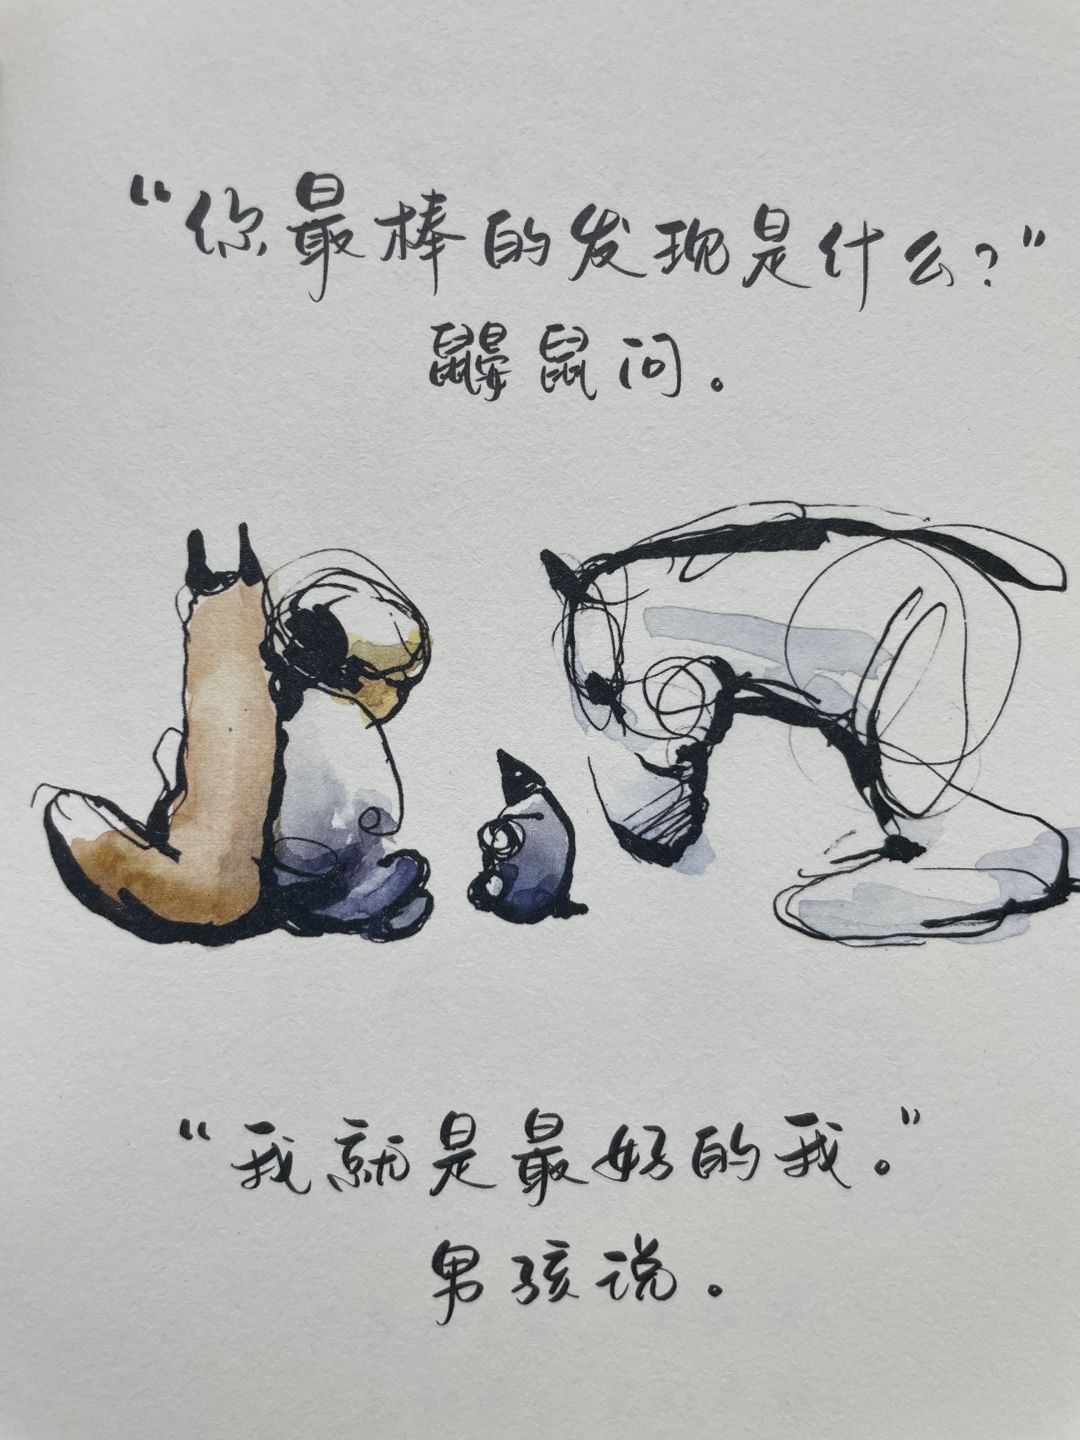 “你最棒的发现是什么?”
鼹鼠问。
“我就是最好的我。”
男孩说。